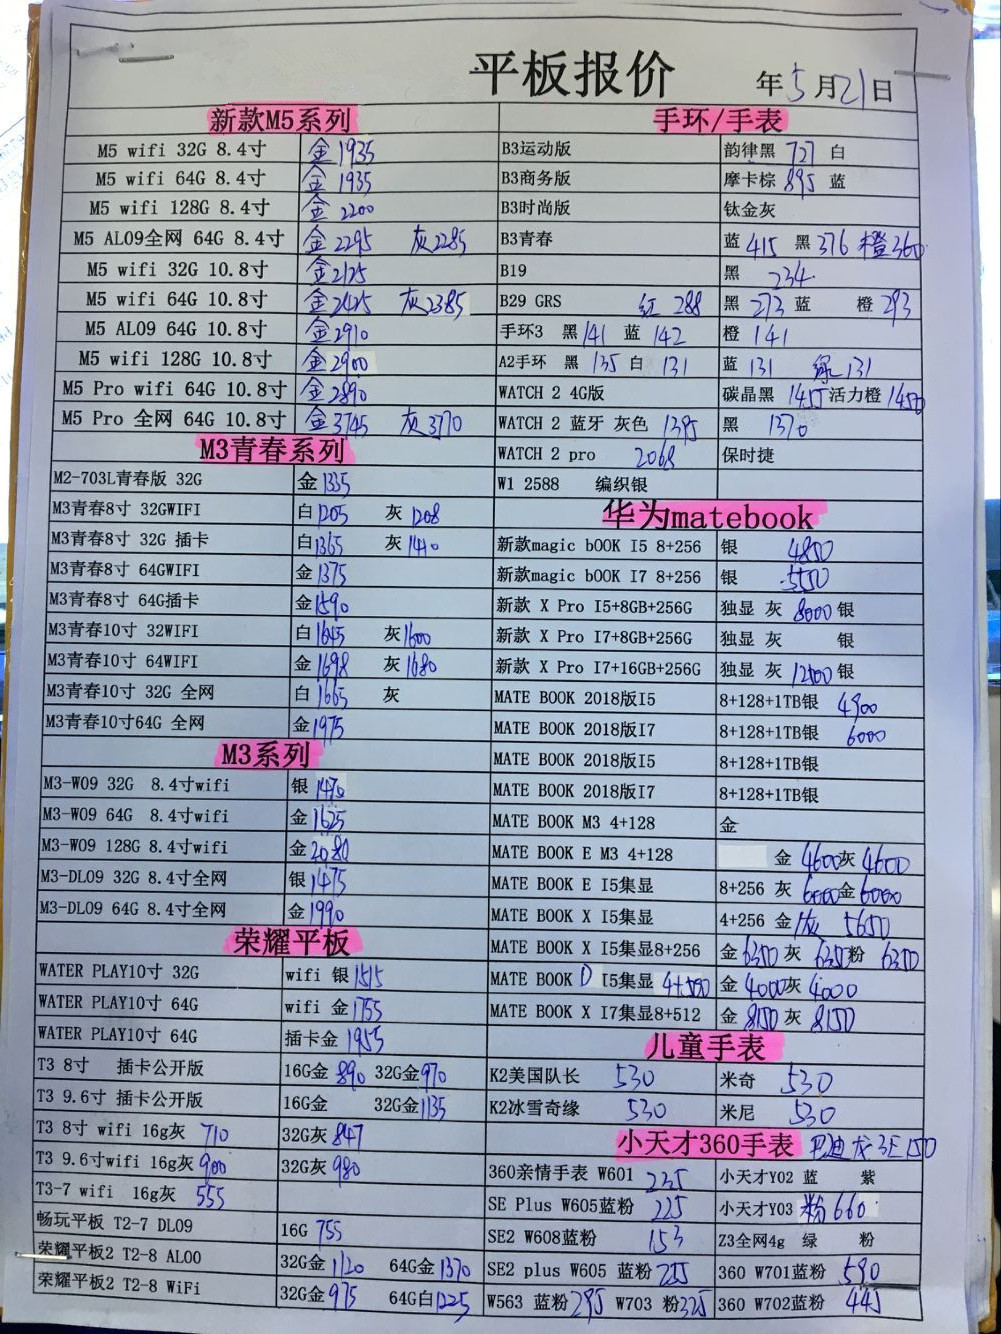 平板报价 年5月21日
新款M5系列
M5 wifi 32G 8.4寸 金1935
M5 wifi 64G 8.4寸 金1935
M5 wifi 128G 8.4寸 金2200
M5 AL09全网 64G 8.4寸 金2295 灰2285
M5 wifi 32G 10.8寸 金2125
M5 wifi 64G 10.8寸 金2425 灰2385
M5 AL09 64G 10.8寸 金2910
M5 wifi 128G 10.8寸 金2900
M5 Pro wifi 64G 10.8寸 金2890
M5 Pro 全网 64G 10.8寸 金3745 灰3770
M3青春系列
M2-703L青春版 32G 金1335
M3青春8寸 32GWIFI 白1205 灰1208
M3青春8寸 32G 插卡 白1365 灰1410
M3青春8寸 64GWIFI 金1375
M3青春8寸 64G插卡 金1590
M3青春10寸 32WIFI 白1645 灰1600
M3青春10寸 64WIFI 金1698 灰1680
M3青春10寸 32G 全网 白1665 灰
M3青春10寸64G 全网 金1975
M3系列
M3-W09 32G 8.4寸wifi 银1470
M3-W09 64G 8.4寸wifi 金1625
M3-W09 128G 8.4寸wifi 金2080
M3-DL09 32G 8.4寸全网 银1475
M3-DL09 64G 8.4寸全网 金1990
荣耀平板
WATER PLAY10寸 32G wifi 银1515
WATER PLAY10寸 64G wifi 金1755
WATER PLAY10寸 64G 插卡金1955
T3 8寸 插卡公开版 16G金890 32G金970
T3 9.6寸 插卡公开版 16G金 32G金1135
T3 8寸 wifi 16g灰 710 32G灰847
T3 9.6寸wifi 16g灰900 32G灰980
T3-7 wifi 16g灰 555
畅玩平板 T2-7 DL09 16G 755
荣耀平板2 T2-8 AL00 32G金1120 64G金1370
荣耀平板2 T2-8 WiFi 32G金975 64G白1225
手环/手表
B3运动版 韵律黑 727 白
B3商务版 摩卡棕 895 蓝
B3时尚版 钛金灰
B3青春 蓝415 黑376 橙360
B19 黑 234
B29 GRS 红 288 黑 273 蓝 橙 293
手环3 黑141 蓝 142 橙 141
A2手环 黑 135 白 131 蓝 131 绿131
WATCH 2 4G版 碳晶黑 1455 活力橙1450
WATCH 2 蓝牙 灰色 1395 黑 1370
WATCH 2 pro 2068 保时捷
W1 2588 编织银
华为matebook
新款magic bOOK I5 8+256 银 4850
新款magic bOOK I7 8+256 银 5550
新款 X Pro I5+8GB+256G 独显 灰 8000 银
新款 X Pro I7+8GB+256G 独显 灰 银
新款 X Pro I7+16GB+256G 独显 灰 银
MATE BOOK 2018版I5 8+128+1TB银 4900
MATE BOOK 2018版I7 8+128+1TB银 6000
MATE BOOK 2018版I5 8+128+1TB银
MATE BOOK 2018版I7 8+128+1TB银
MATE BOOK M3 4+128 金
MATE BOOK E M3 4+128 金 4600灰 4600
MATE BOOK E I5集显 8+256 灰 6000金6000
MATE BOOK X I5集显 4+256 金/灰 5650
MATE BOOK X I5集显8+256 金6350灰 6350粉 6350
MATE BOOK D I5集显 金 4000灰 4000
MATE BOOK X I7集显8+512 金 8150灰 8150
儿童手表
K2美国队长 530 米奇 530
K2冰雪奇缘 530 米尼 530
小天才360手表 巴迪龙3E150
360亲情手表 W601 235 小天才Y02 蓝 紫
SE Plus W605蓝粉 225 小天才Y03 粉660
SE2 W608蓝粉 153 Z3全网4g 绿 粉
SE2 plus W605 蓝粉255 360 W701蓝粉 590
W563 蓝粉295 W703 粉325 360 W702蓝粉 445